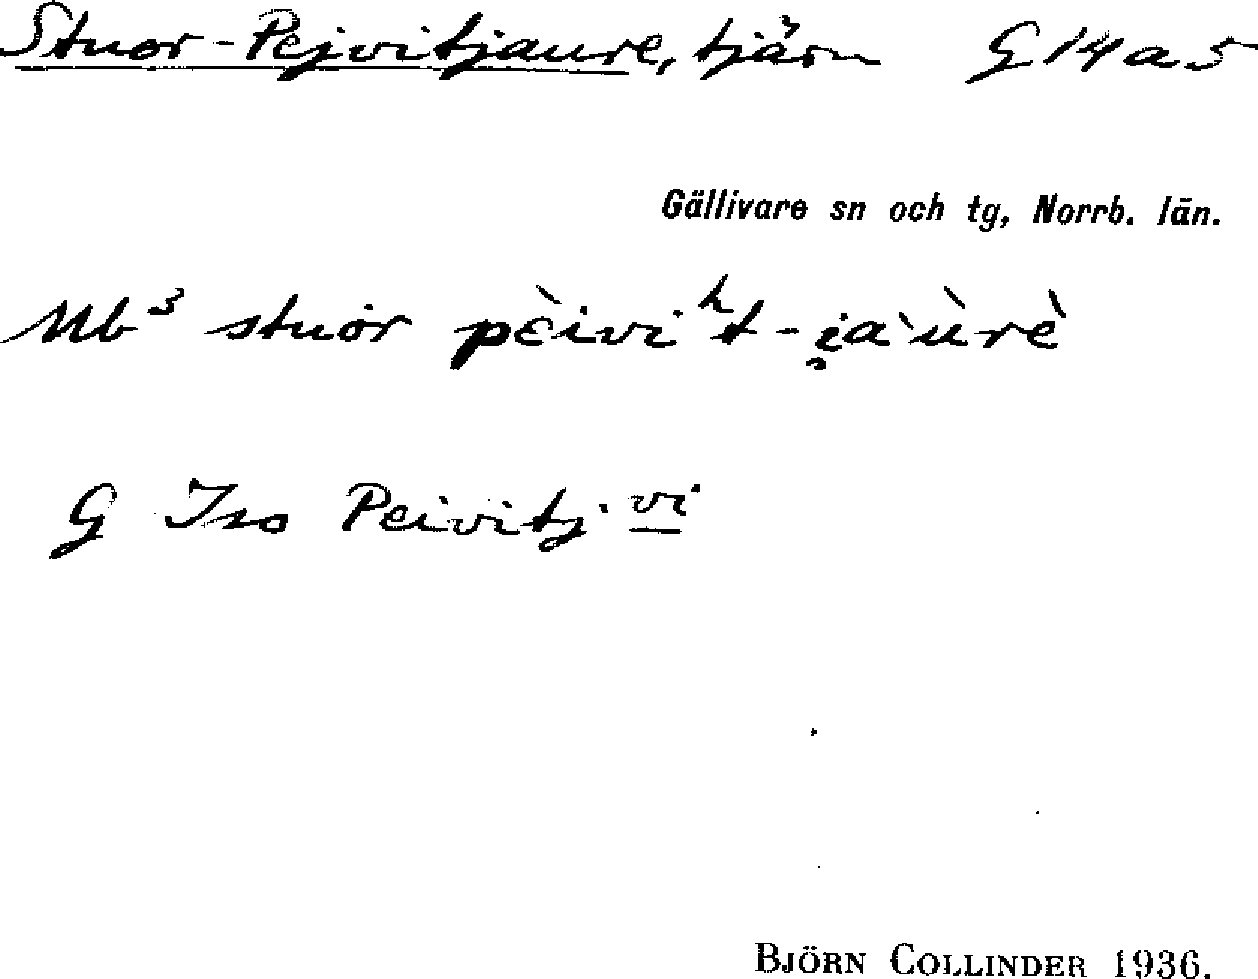 Stuor-Pejvitjaure, tjärn G 14 a 5
Gällivare sn och tg, Norrb. län.
Mb³ stuȯr pὲivi ʰt-i̯a`ùrè
G Iso Peivitj. vi
BJÖRN COLLINDER 1936.